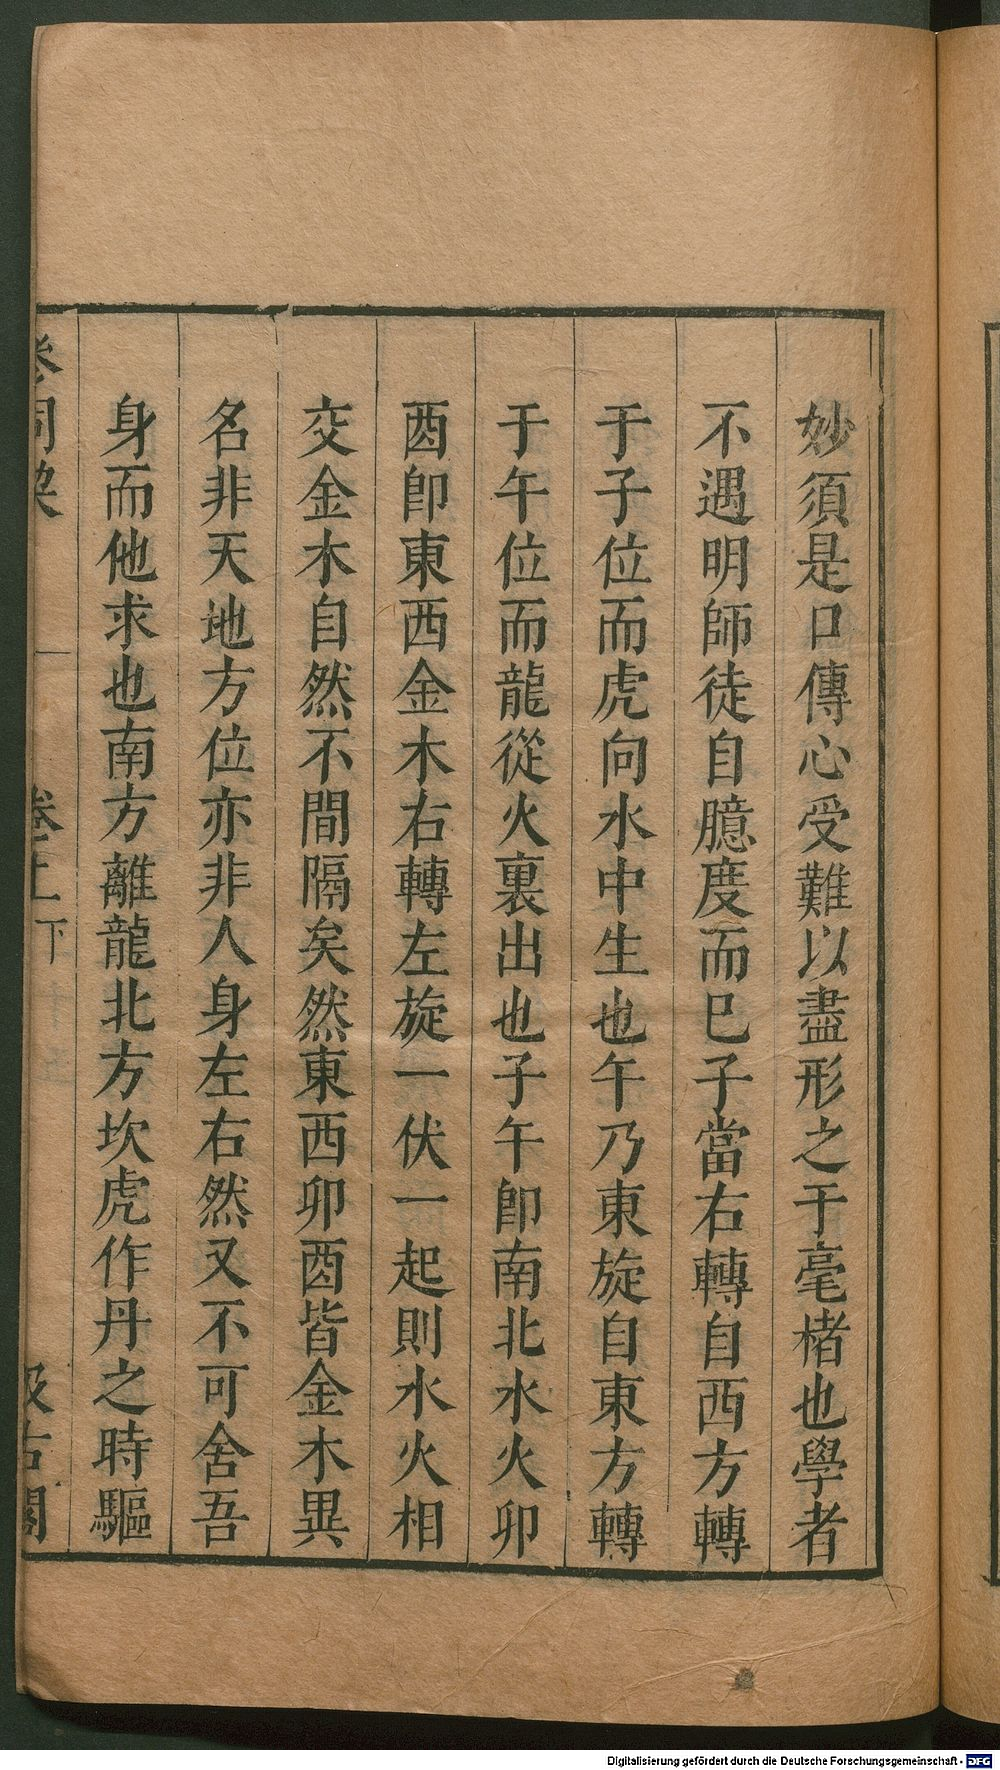 妙須是口傳心受難以盡形之于毫楮也學者
不遇明師徒自臆度而巳子當右轉自西方轉
于子位而虎向水中生也午乃東旋自東方轉
于午位而龍從火裏出也子午卽南北水火卯
酉卽東西金木右轉左旋一伏一起則水火相
交金木自然不間隔矣然東西卯酉皆金木異
名非天地方位亦非人身左右然又不可舍吾
身而他求也南方離龍北方坎虎作丹之時驅
卷上下
汲古閣
Digitalisierung gefördert durch die Deutsche Forschungsgemeinschaft - DFG